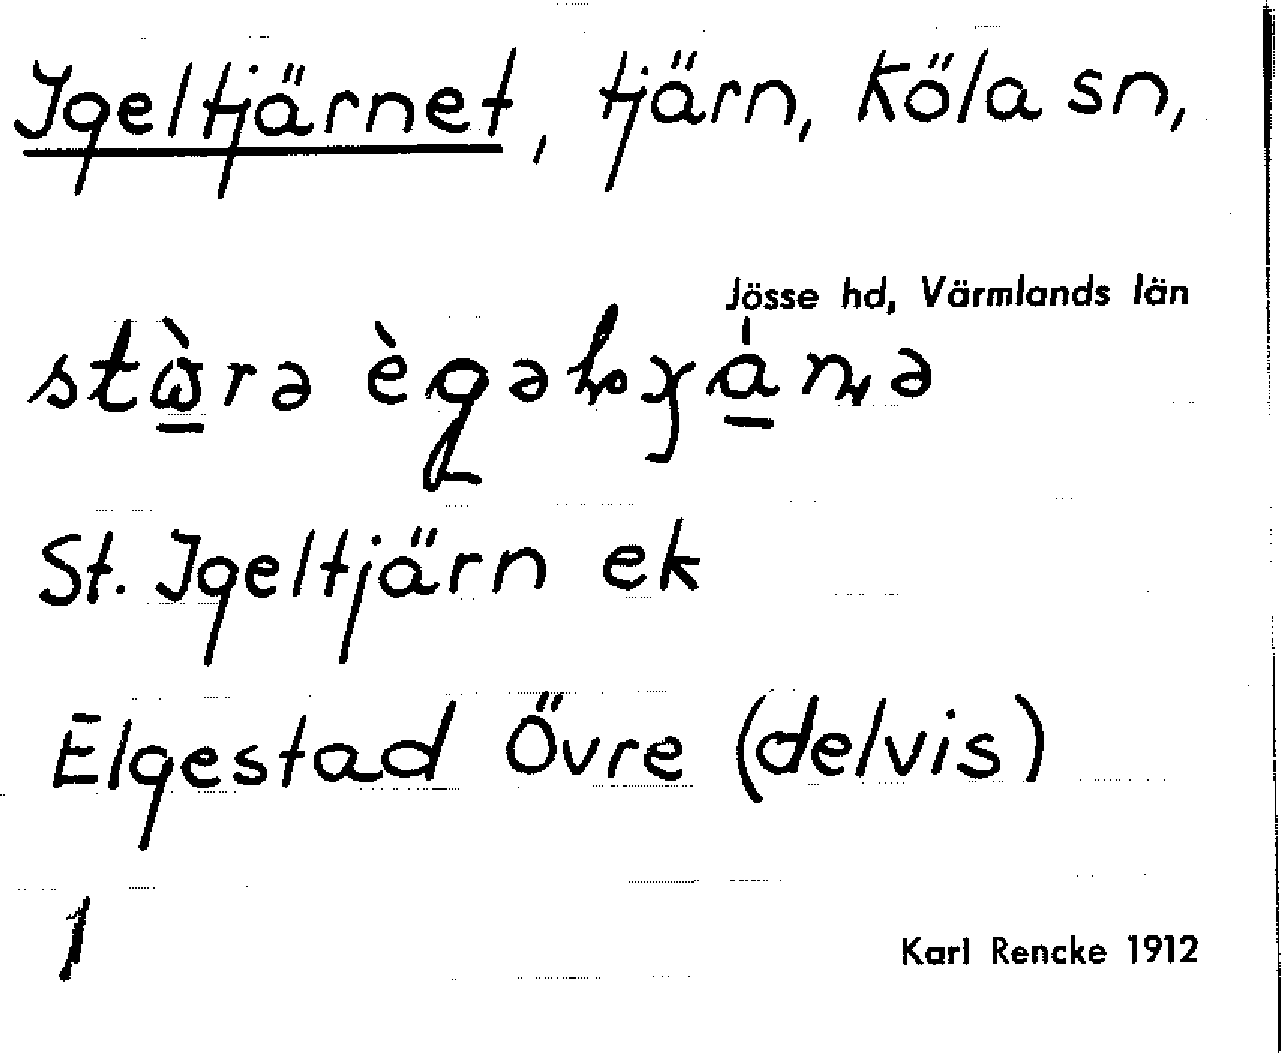 Igeltjärnet, tjärn, Köla sn,
Jösse hd, Värmlands län
St. Igeltjärn ek
Elgestad Övre (delvis)
1
Karl Rencke 1912